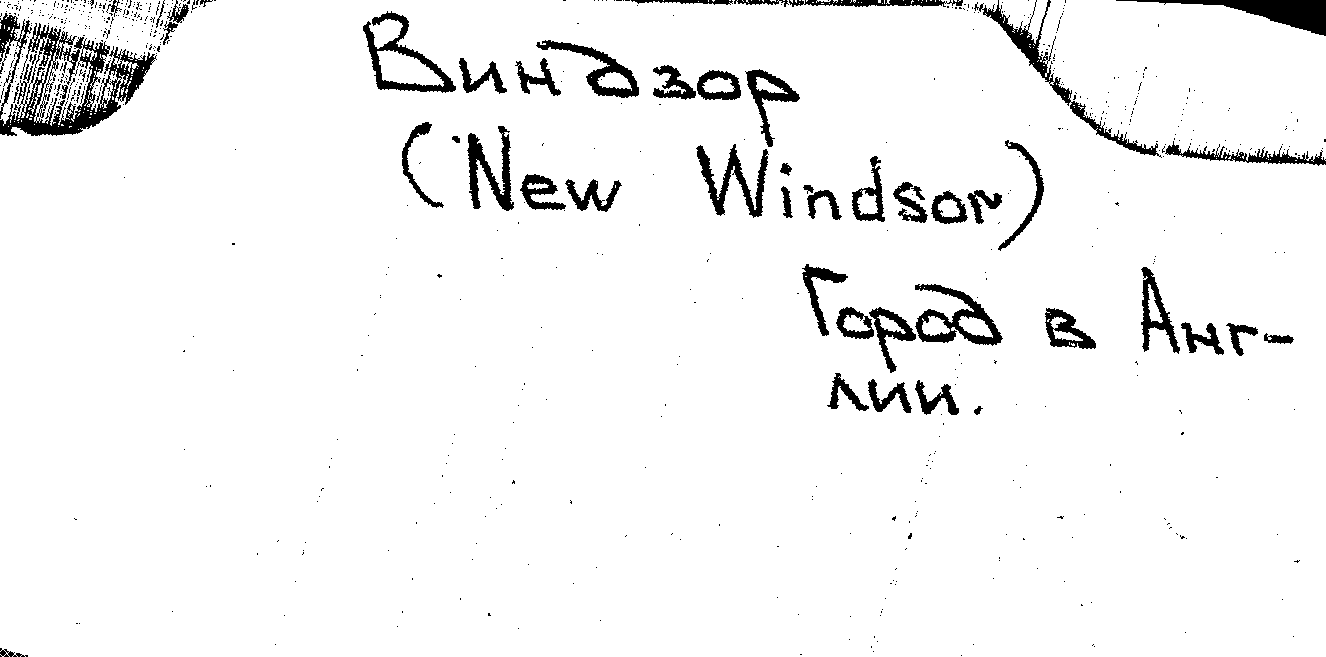 Виндзор
(New Windsor)
Город в Анг-
лии.